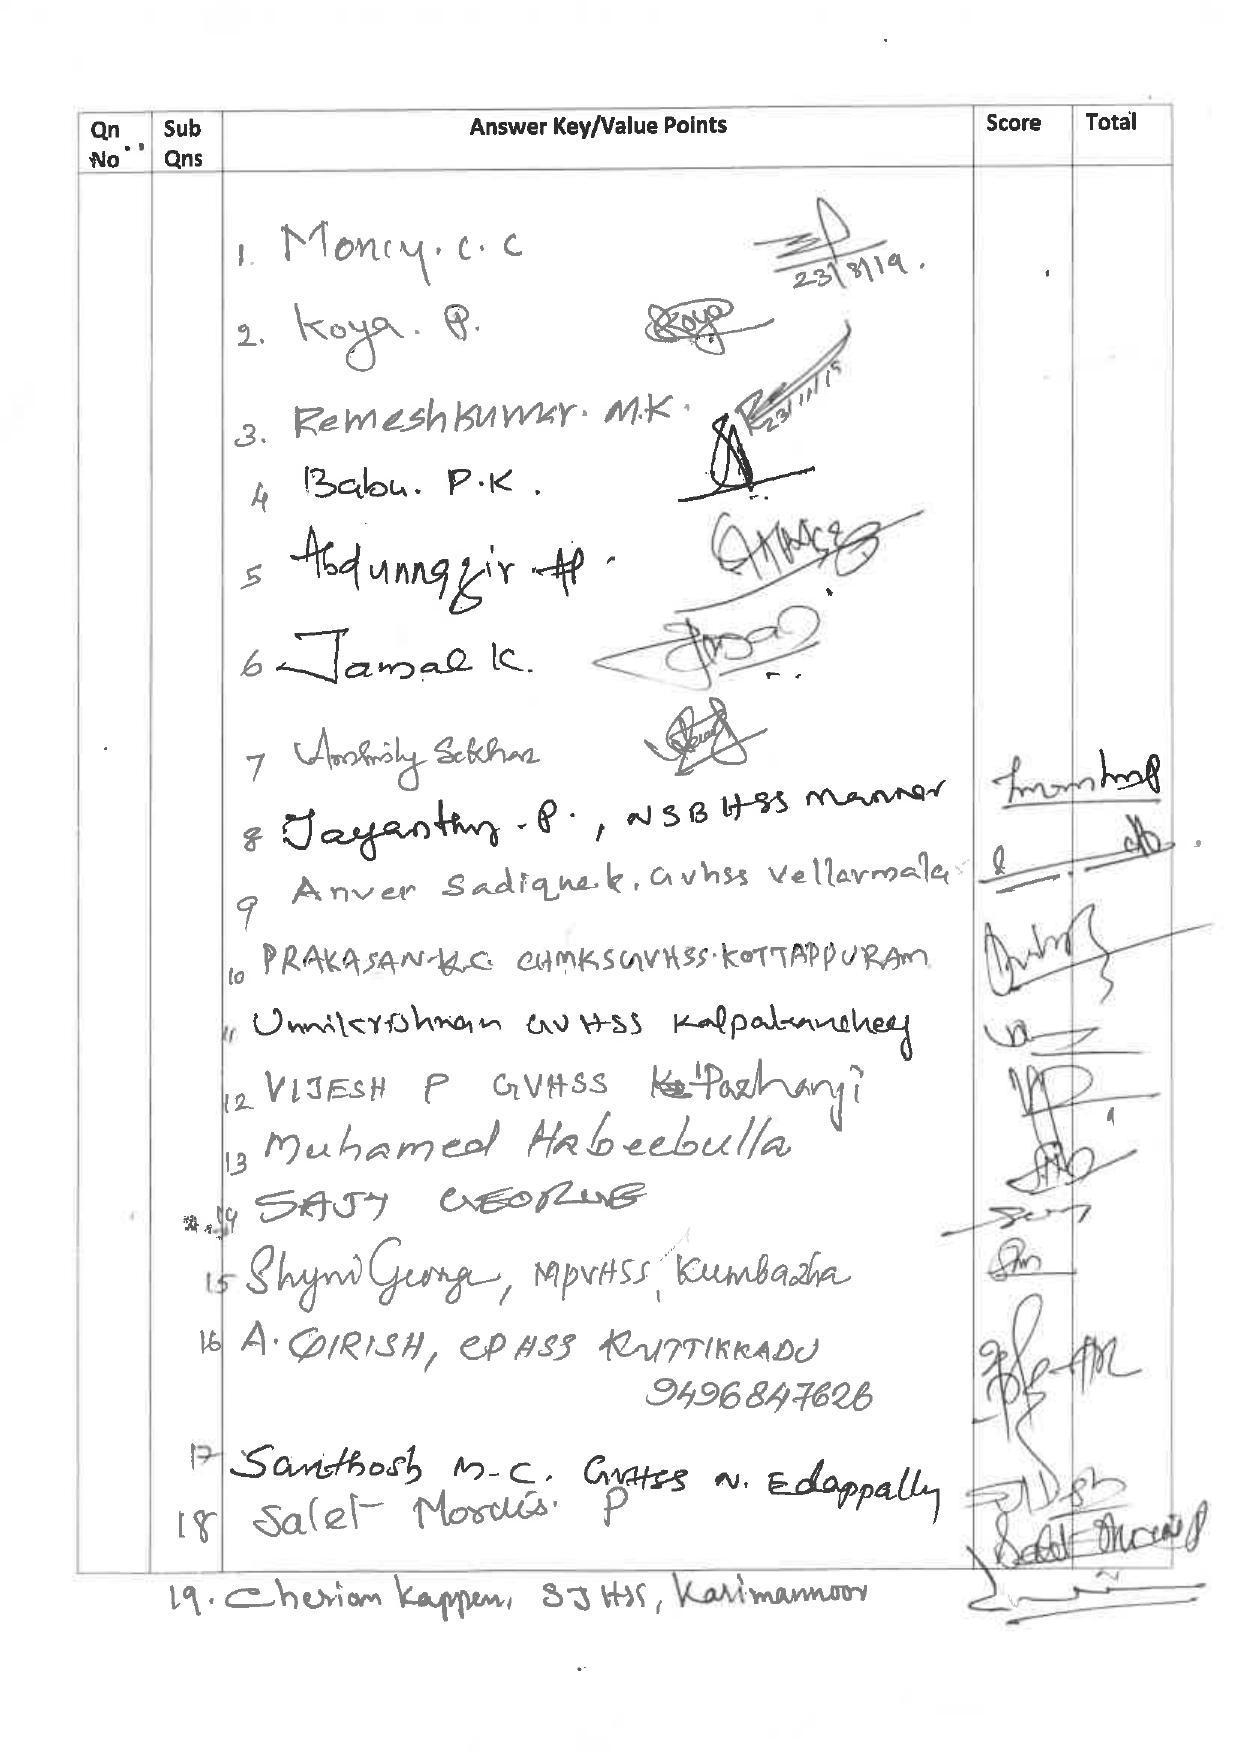 Qn No Sub Qns Answer Key/Value Points Score Total
1. Moncy. C. C
23/3/19.
2. Koya. P. Koya
3. Remeshkumar. M.K.
4 Babu. P.K.
5 Abdunnazir
6 Jamsal K.
7 Sekhar
8 Jayanthy. P., NSBHSS Mannar
9 Anver Sadique.k. Gvhss Vellarmala
10 PRAKASAN.K.C. CHMKSGVHSS.KOTTAPPURAM
11 Unnikrishnan GVHSS Kalpakanchery
12 VIJESH P GVHSS Pazhanji
13 Muhamed Habeebulla
14 SAJY GEORGE
15 Shyni George, MPVHSS, Kumbazha
16 A. GIRISH, EPHSS KUTTIKKADU
9496847626
17 Santhosh M-C. GVHSS N. Edappally
18 Salet P
19. Cherian Kappen, SJHSS, Karimannoor